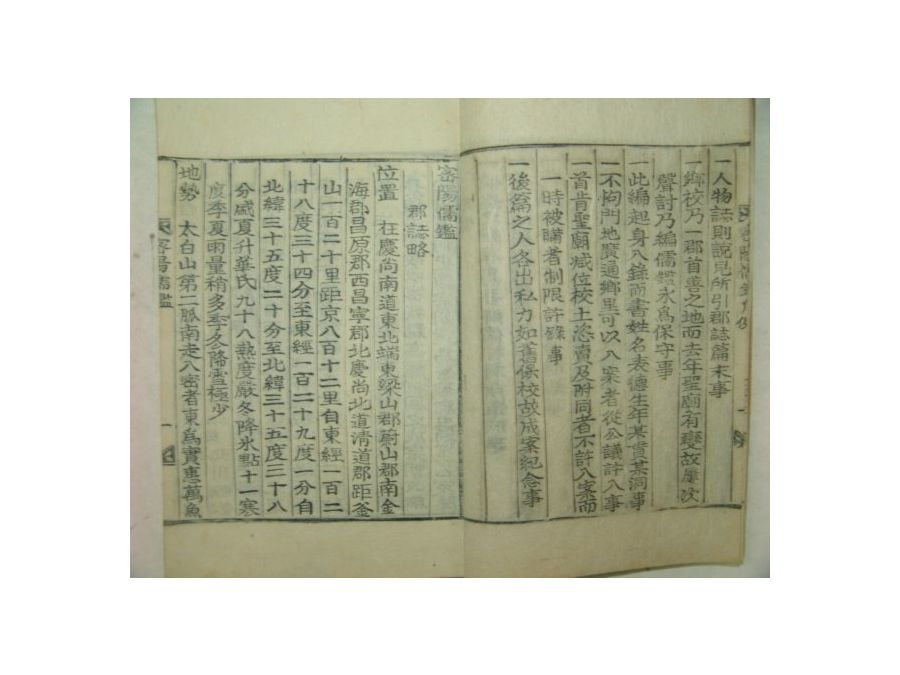 一人物誌則說見所引郡誌篇末事
一鄉校乃一郡首善之地而去年聖廟有變故屢次
聲討乃編儒鑑永爲保守事
一此編起身入錄而書姓名表德生年某貫某洞事
一不拘門地廣通鄉里可以入案者從公議許入事
一首肯聖廟减位校土恣賣及附同者不許入案而
一時被瞞者制限許錄事
一後篇之人各出私力如舊保校故成案紀念事
密陽儒鑑
郡誌略
位置 在慶尙南道東北端東梁山郡蔚山郡南金
海郡昌原郡西昌寧郡北慶尙北道清道郡距釜
山一百二十里距京八百十二里自東經一百二
十八度三十四分至東經一百二十九度一分自
北緯三十五度二十分至北緯三十五度三十八
分盛夏升華氏九十八熱度嚴冬降氷點十一寒
度季夏雨量稍多季冬降雪極少
地勢 太白山第二脈南走入密者東爲實惠萬魚
密陽儒鑑 一